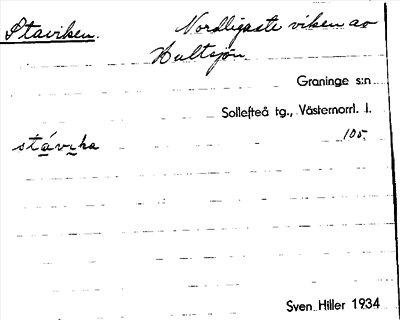 Staviken. Nordligaste viken av
Hultsjön.
Graninge s:n
Sollefteå tg., Västernorrl. l.
stávika 105.
Sven Hiller 1934